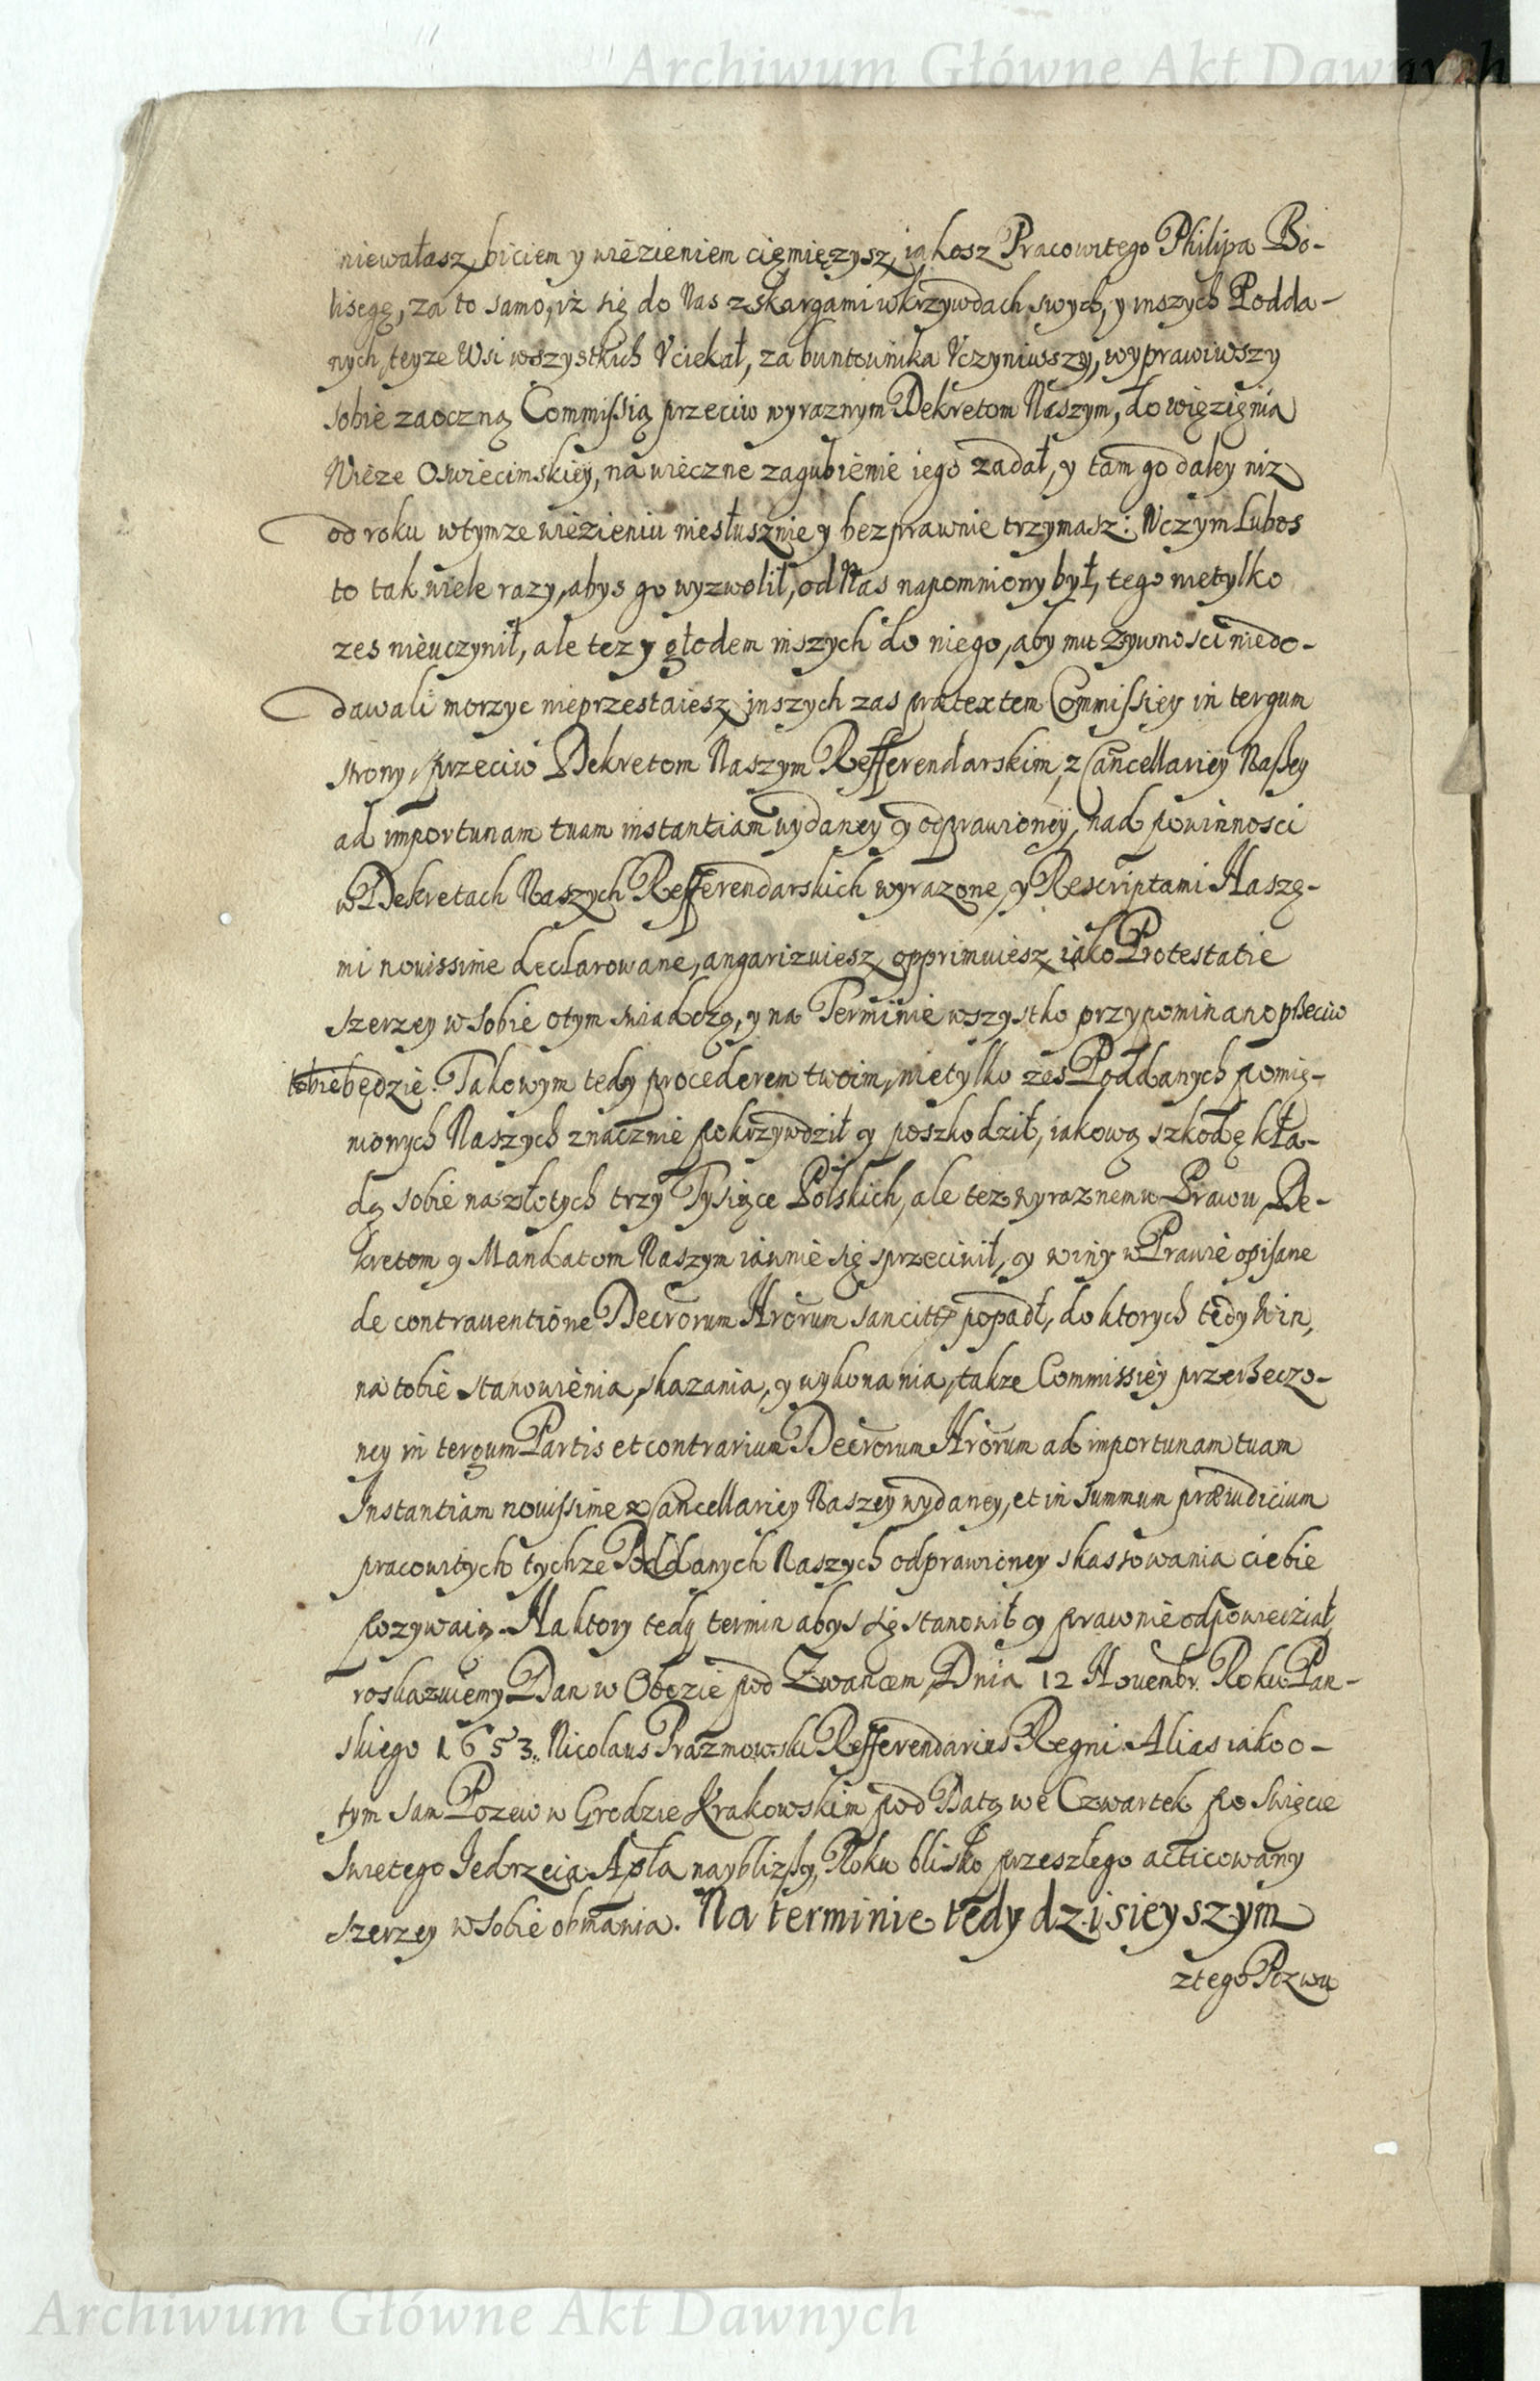 Archiwum Główne Akt Dawnych
niewałasz, biciem y więzieniem cięmięzysz, iakosz Pracowitego Philipa Bo-
lisęgę, za to samo, iż się do Nas z skargami w krzywdach swych, y inszych Podda-
nych teyze Wsi wszystkich Vciekał, za buntownika Vczyniwszy, wyprawiwszy
sobie zaoczną Commissią przeciw wyraznym Dekretom Naszym, do więzięnia
Wieze Oswiecimskiey, na wieczne zagubienie iego zadał, y tam go daley niz
od roku w tymze wiezieniu niesłusznie y bezprawnie trzymasz: Wczym lubos
to tak wiele razy, abys go wyzwolił, od Nas napomniony był, tego nietylko
zes nieuczynił, ale tez y głodem inszych do niego, aby mu zywnosci niedo-
dawali morzyc nieprzestaiesz, inszych zas prætextem Commissiey in tergum
strony, przeciw Dekretom Naszym Refferendarskim, z Cancellariey Naßey
ad importunam tuam instantiam wydaney y odprawioney, nad powinnosci
w Dekretach Naszych Refferendarskich wyrazone, y Rescriptami Naszę-
mi nouissime declarowane, angarizuiesz, opprimuiesz, iako Protestatie
szerzey w sobie o tym swiadczą, y na Terminie wszystko przypominano pßeciw
tobie będzie. Takowym tedy procederem twoim, nietylko zes Poddanych pomię-
nionych Naszych znacznie pokrzywdził y poszkodził, iakową szkodę kła-
dą sobie na złotych trzy Tysiące Polskich, ale tez wyraznemu Prawu, De-
kretom y Mandatom Naszym iawnie się sprzeciwił, y winy w Prawie opisane
de contrauentione Decrorum Nrorum sancitas popadł, do ktorych tedy win,
na tobie stanowienia, skazania, y wykonania, takze Commissiey przerzeczo-
ney in tergum Partis et contrarium Decrorum Nrorum ad importunam tuam
Instantiam nouissime z Cancellariey Naszey wydaney, et in summum præiudicium
pracowitych tychze Poddanych Naszych odprawioney skassowania ciebie
pozywaią. Na ktory tedy termin abys się stanowił y prawnie odpowiedział,
roskazuiemy. Dan w Obozie pod Zwancem, Dnia 12 Nouembr. Roku Pan-
skiego 1653. Nicolaus Prazmowski Refferendarius Regni. Alias iako o-
tym sam Pozew w Grodzie Krakowskim pod Datą we Czwartek po swięcie
Swietego Jedrzeia Apła naybliższy, Roku blisko przeszłego acticowany
szerzey w sobie obmawia. Na terminie tedy dzisieyszym
z tego Pozwu
Archiwum Główne Akt Dawnych